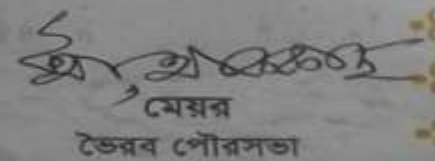 মেয়র
ভৈরব পৌরসভা